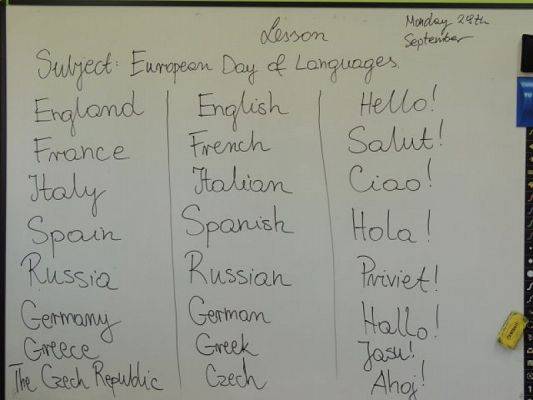 Lesson
Monday 29th
September
Subject: European Day of Languages
England English Hello!
France French Salut!
Italy Italian Ciao!
Spain Spanish Hola!
Russia Russian Priviet!
Germany German Hallo!
Greece Greek Jasu!
The Czech Republic Czech Ahoj!